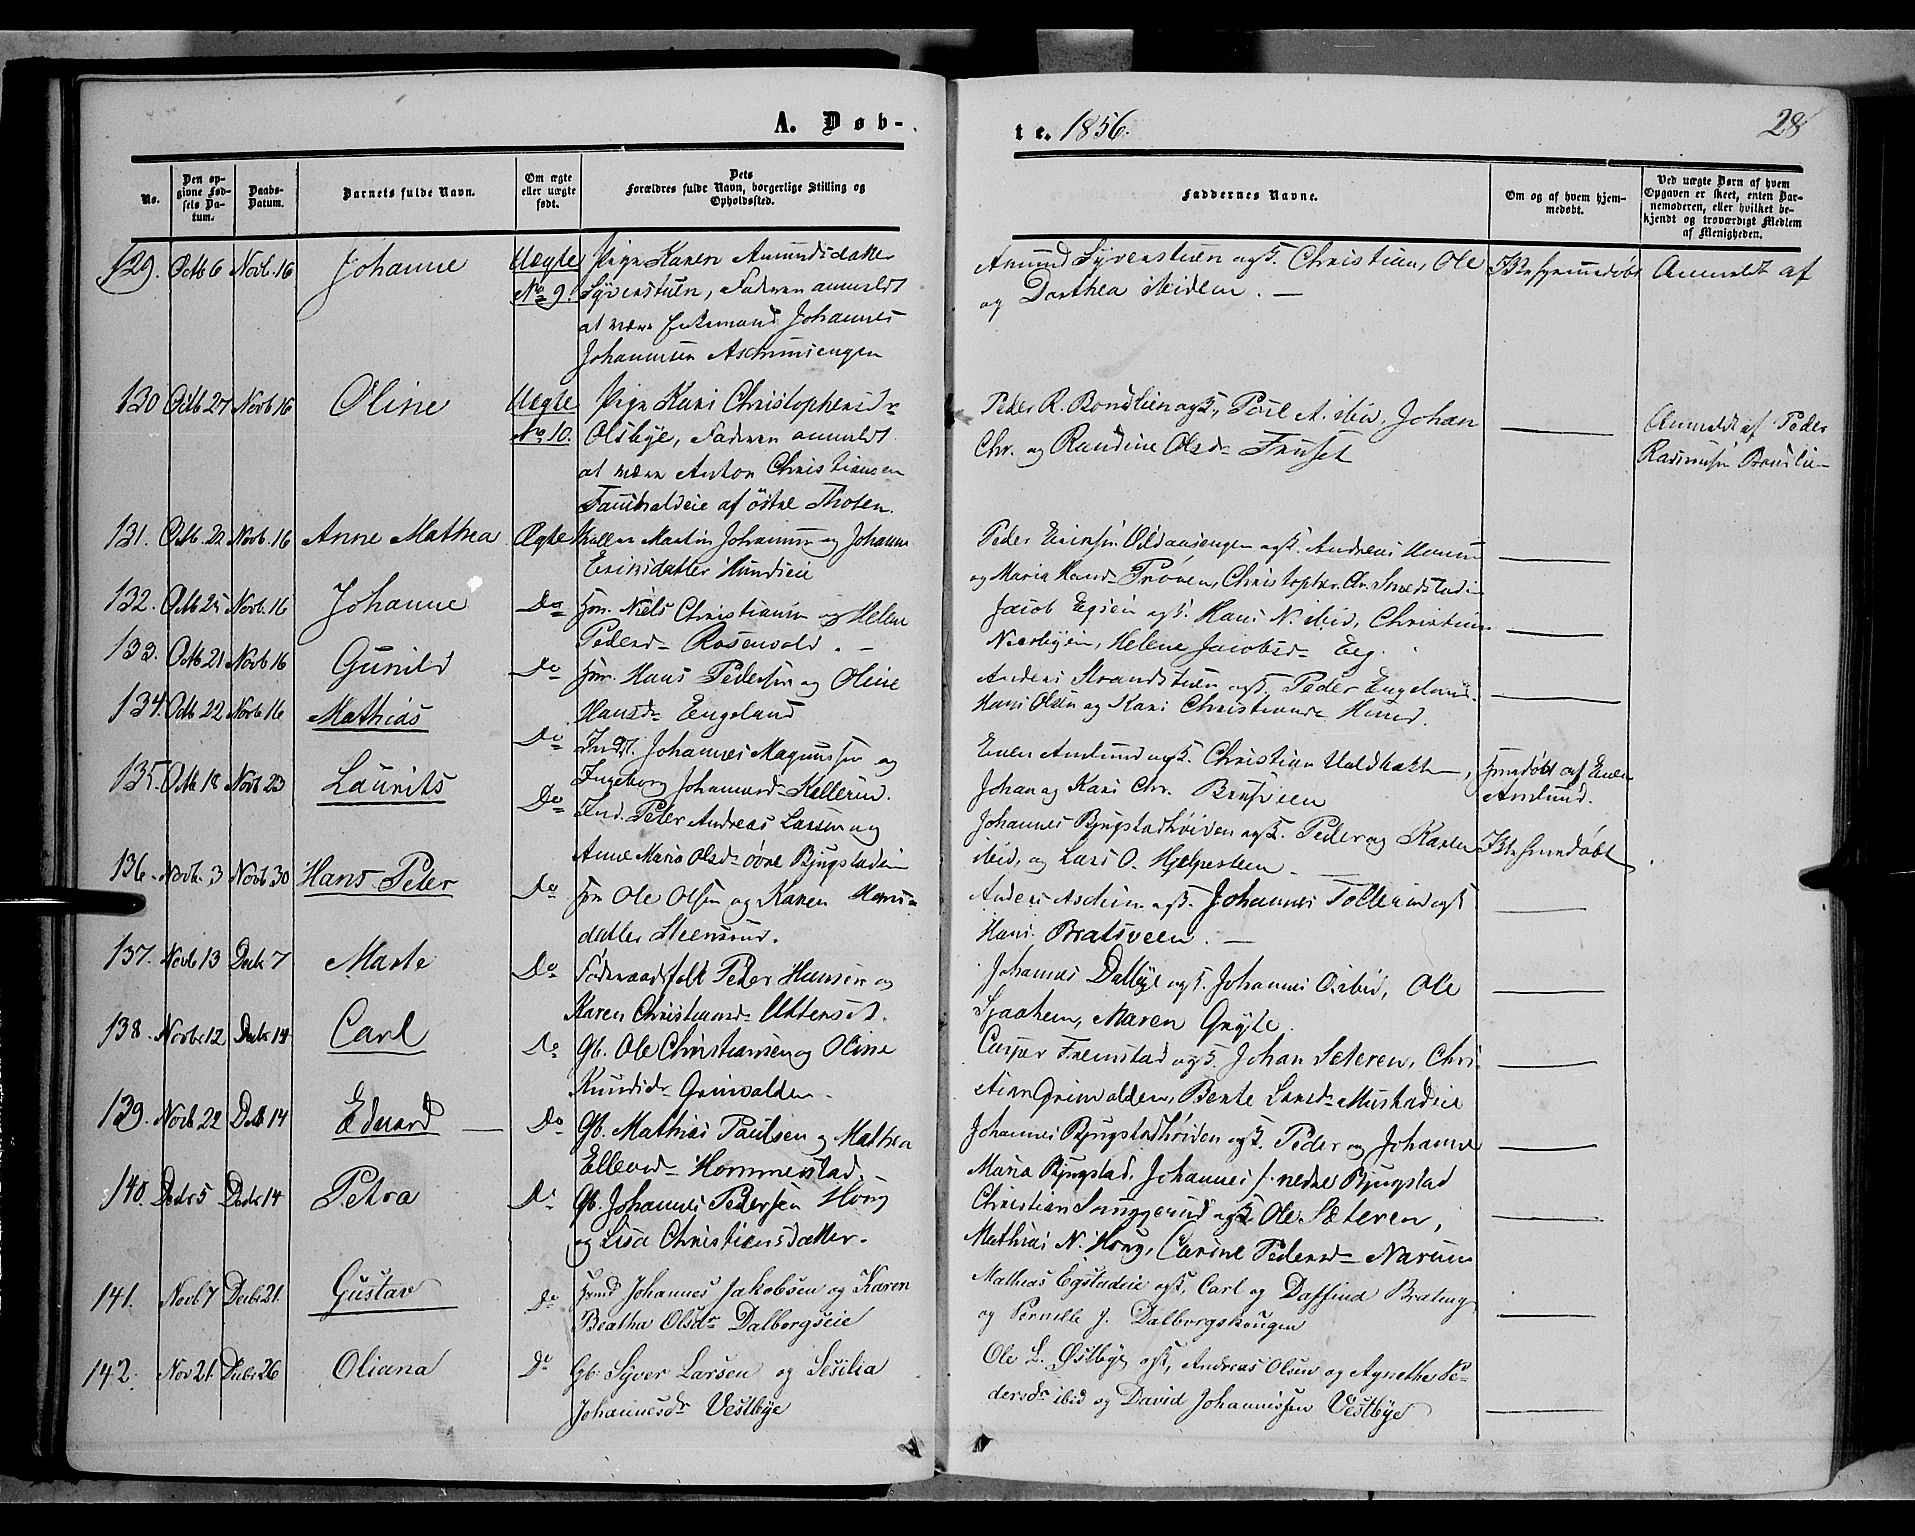 A. Døb-
te. 1856.
28
No.
Den op-
givne Fød-
sels Da-
tum.
Daabs-
Datum.
Barnets fulde Navn.
Om ægte
eller uægte
født.
Dets
Forældres fulde Navn, borgerlige Stilling og
Opholdssted.
Faddernes Navne.
Om og af hvem hjem-
medøbt.
Ved uægte Børn af hvem
Opgaven er skeet, enten Bar-
nemoderen, eller hvilket be-
kjendt og troværdigt Medlem
af Menigheden.
129. Octb 6 Novb. 16 Johanne Uægte Pige Karen Amundsdatter
No 9. Syverstuen, Faderen anmeldt
at være Enkemand Johannes
Johannesen Aschimsengen
Amund Syverstuen ogk. Christian, Ole
og Dorthea ibidem.
Ikke hjemmedøbt
Anmeldt af
130 Octb 27 Novb 16 Oline Uægte Pige Kari Christophersdr
No 10. Olsbye, Faderen anmeldt
at være Anton Christiansen
af østre Thoten.
Peder R. Bondlien ogk, Poul A. ibid, Johan
Chr. og Randine Olsdr Fruset
Anmeldt af Peder
Rasmusen Bondlien
131. Octb. 22 Novb. 16 Anne Mathea Ægte Martin Johannesen og Johanne
Ericsdatter Hundseie
Peder ogk. Andreas
og Maria Hansdr Prøven, Christopher
132. Octb 25 Novb. 16 Johanne Do Niels Christiansen og Helene
Pedersdr Rosenvold.
Jacob ogk. Hans N. ibid, Christian
Helene Jacobsdr Eeg.
133. Octb 21 Novb 16 Gunild Do Hans Pedersen og Oline
Hansdr Engeland
Anders Strandstuen ogk, Peder Engeland
Hans Olsen og Kari Christiansdr Hund.
134. Octb 22 Novb 16 Mathias Do Johannes Magnussen og
Ingeborg Johannesdr Kallerud.
Even Amlund ogk. Christian
Johan og Kari Chr. Brusveen
Hjemdøbt af Even
Amlund.
135. Octb 18 Novb 23 Laurits Do Ind. Peter Andreas Larsen og
Anne Maria Olsdr øvre Bjugstadeie
Johannes Bjugstadhøiden ogk. Peder og Karen
ibid, og Lars O. Hjelpesteen
Ikke hjemmedøbt
136. Novb. 3 Novb 30 Hans Peter Do Ole Olsen og Karen Hans-
datter Steensrud.
Anders Aschim ogk. Johannes Tollerud ogk
Hans Bratsveen.
137. Novb 13 Decb 7 Marte Do Føderaadsfolk Peder Hansen og
Karen Christiansdr
Johannes Dalbye ogk. Johannes O. ibid, Ole
Maren Gryte.
138. Novb 12 Decb 14 Carl Do Gb. Ole Christiansen og Oline
Knudsdr Grinvolden.
Casper Fremstad ogk. Johan Seteren, Chri-
stian Grinvolden, Bente Larsdr Mustadeie
139. Novb 22 Decb 14 Eduard Do Gb. Mathias Paulsen og Mathea
Ellevsdr Hommerstad
Johannes Bjugstadhøiden ogk. Peder og Johanne
Maria Bjugstad, Johannes J. nedre Bjugstad
140. Decbr 5 Decbr 14 Petra Do Gb. Johannes Pedersen Hong
og Lisa Christiensdatter.
Christian ogk Ole Sæteren,
Mathias N. Hong, Carine Pedersdr Narum
141. Novb. 7 Decbr 21. Gustav Do Johannes Jakobsen og Karen
Beatha Olsdr Dalborgseie
Mathias Egstadeie ogk, Carl og Daffina Brateng
og Pernille J. Dalborgshaugen
142. Nov 21. Decbr 26 Oliana Do Gb. Syver Larsen og Sesilia
Johannesdr Vestbye
Ole L. Østbye ogk, Andreas Olsen og Agnethe Pe-
dersdr ibid og David Johannissen Vestbye